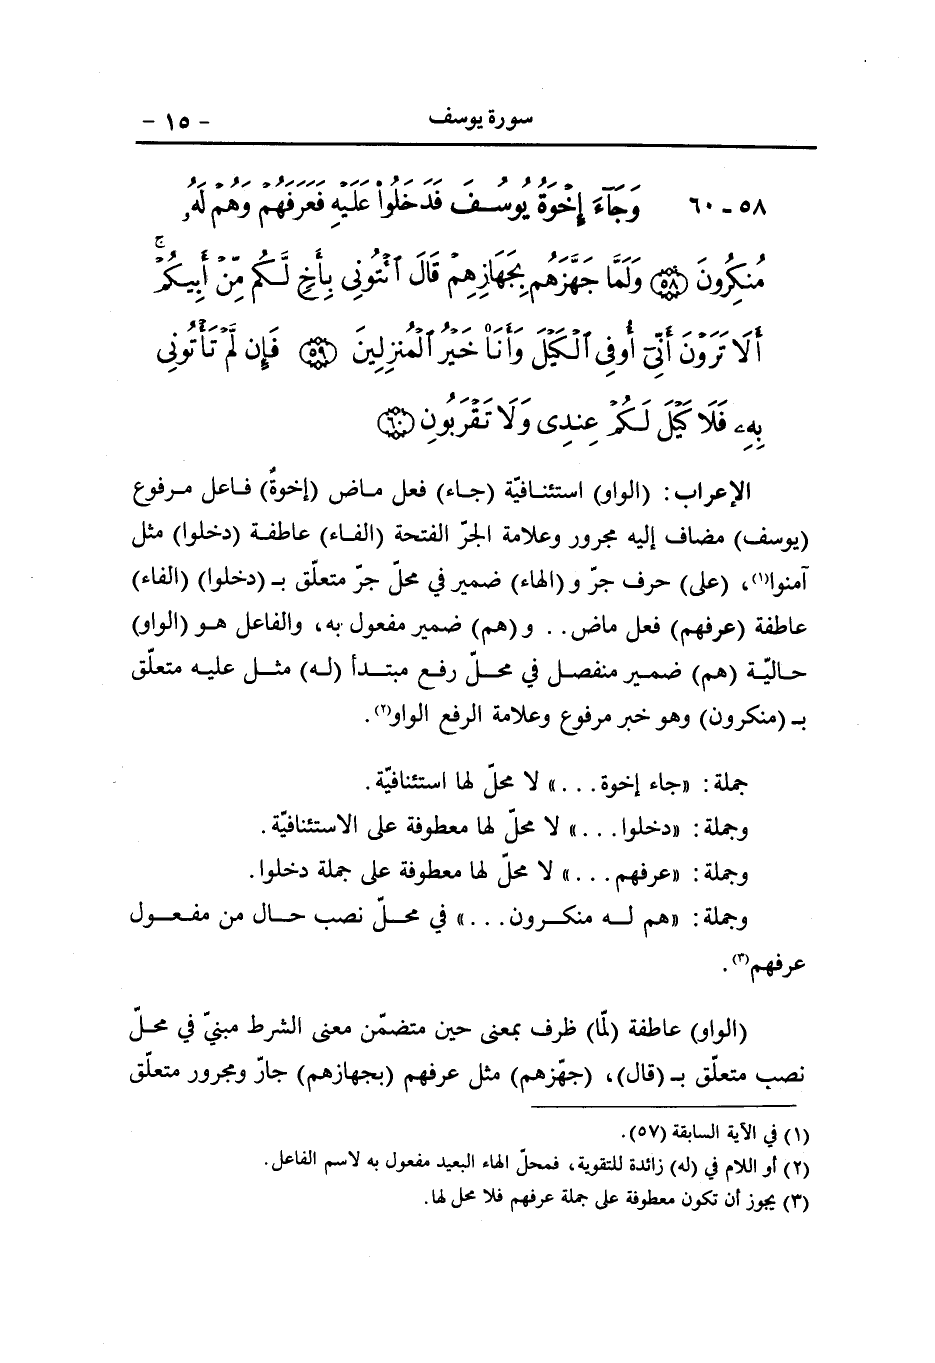 سورة يوسف - ١٥ -
٥٨ - ٦٠ وَجَآءَ إِخْوَةُ يُوسُفَ فَدَخَلُوا۟ عَلَيْهِ فَعَرَفَهُمْ وَهُمْ لَهُۥ
مُنكِرُونَ ﴿٥٨﴾ وَلَمَّا جَهَّزَهُم بِجَهَازِهِمْ قَالَ ٱئْتُونِى بِأَخٍ لَّكُم مِّنْ أَبِيكُمْ ۚ
أَلَا تَرَوْنَ أَنِّىٓ أُوفِى ٱلْكَيْلَ وَأَنَا۠ خَيْرُ ٱلْمُنزِلِينَ ﴿٥٩﴾ فَإِن لَّمْ تَأْتُونِى
بِهِۦ فَلَا كَيْلَ لَكُمْ عِندِى وَلَا تَقْرَبُونِ ﴿٦٠﴾
الإعراب: (الواو) استئنافيّة (جاء) فعل ماض (إخوةُ) فاعل مرفوع
(يوسف) مضاف إليه مجرور وعلامة الجرّ الفتحة (الفاء) عاطفة (دخلوا) مثل
آمنوا(١)، (على) حرف جرّ و(الهاء) ضمير في محلّ جرّ متعلّق بـ (دخلوا) (الفاء)
عاطفة (عرفهم) فعل ماض.. و(هم) ضمير مفعول به، والفاعل هو (الواو)
حاليّة (هم) ضمير منفصل في محلّ رفع مبتدأ (له) مثل عليه متعلّق
بـ (منكرون) وهو خبر مرفوع وعلامة الرفع الواو(٢).
جملة: «جاء إخوة...» لا محلّ لها استئنافيّة.
وجملة: «دخلوا...» لا محلّ لها معطوفة على الاستئنافيّة.
وجملة: «عرفهم...» لا محلّ لها معطوفة على جملة دخلوا.
وجملة: «هم له منكرون...» في محلّ نصب حال من مفعول
عرفهم(٣).
(الواو) عاطفة (لمّا) ظرف بمعنى حين متضمّن معنى الشرط مبنيّ في محلّ
نصب متعلّق بـ (قال)، (جهّزهم) مثل عرفهم (بجهازهم) جارّ ومجرور متعلّق
(١) في الآية السابقة (٥٧).
(٢) أو اللام في (له) زائدة للتقوية، فمحلّ الهاء البعيد مفعول به لاسم الفاعل.
(٣) يجوز أن تكون معطوفة على جملة عرفهم فلا محل لها.